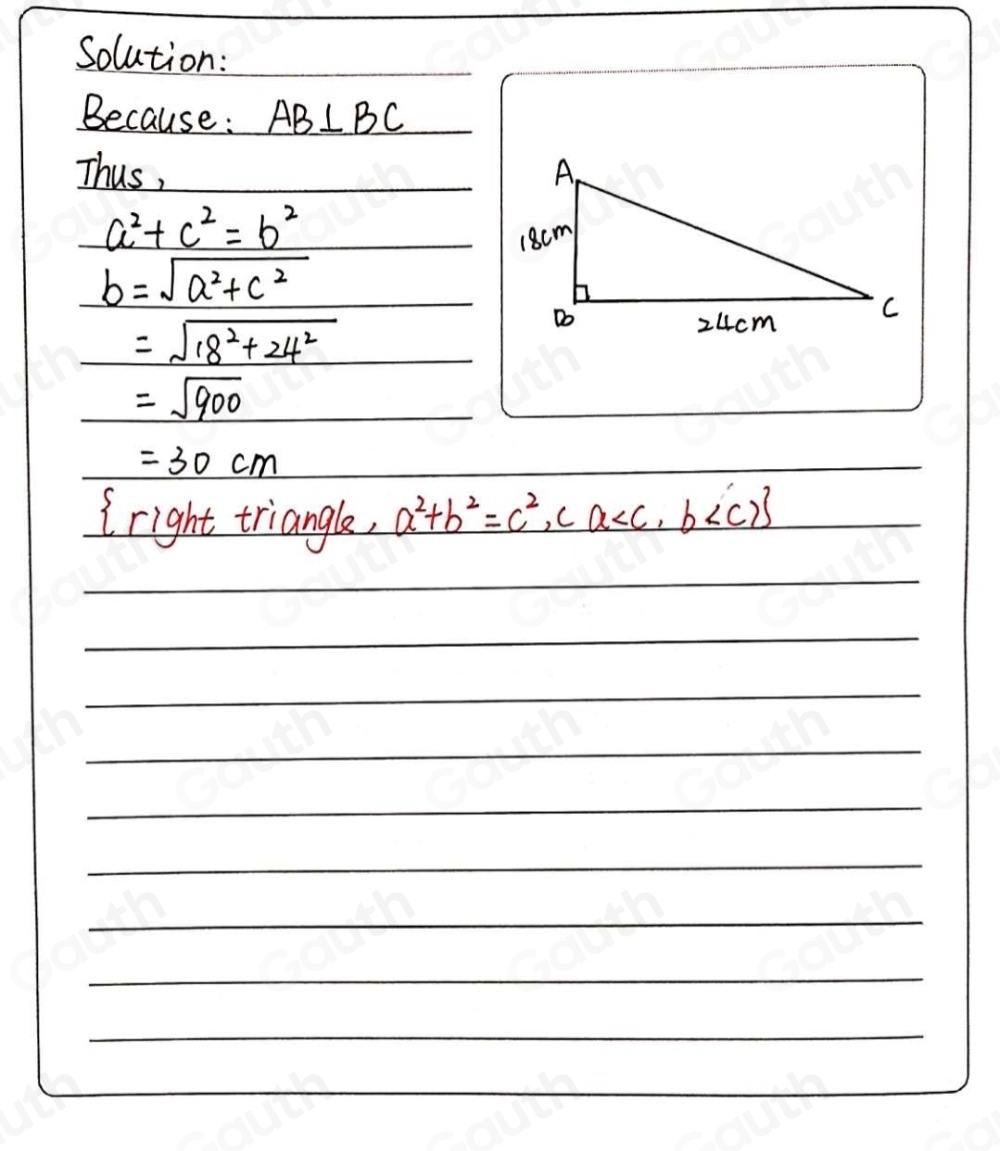 Solution:
Because: AB⊥BC
Thus,
a²+c²=b²
b=√a²+c²
=√18²+24²
=√900
=30 cm
{right triangle, a²+b²=c², ( a<c, b<c)}
A
18cm
B
24cm
C
Gauth